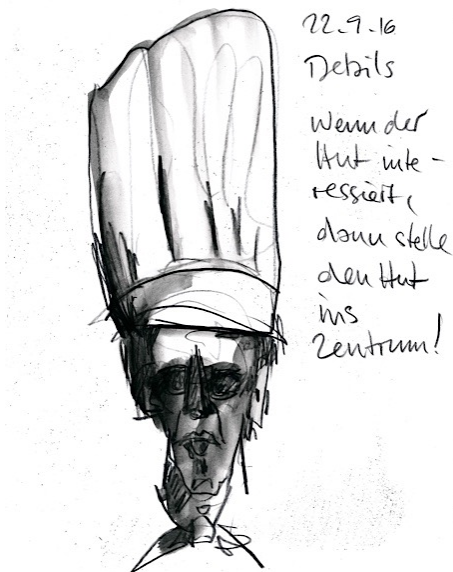 22.9.16
Details
Wenn der
Hut inte-
ressiert,
dann stelle
den Hut
ins
Zentrum!